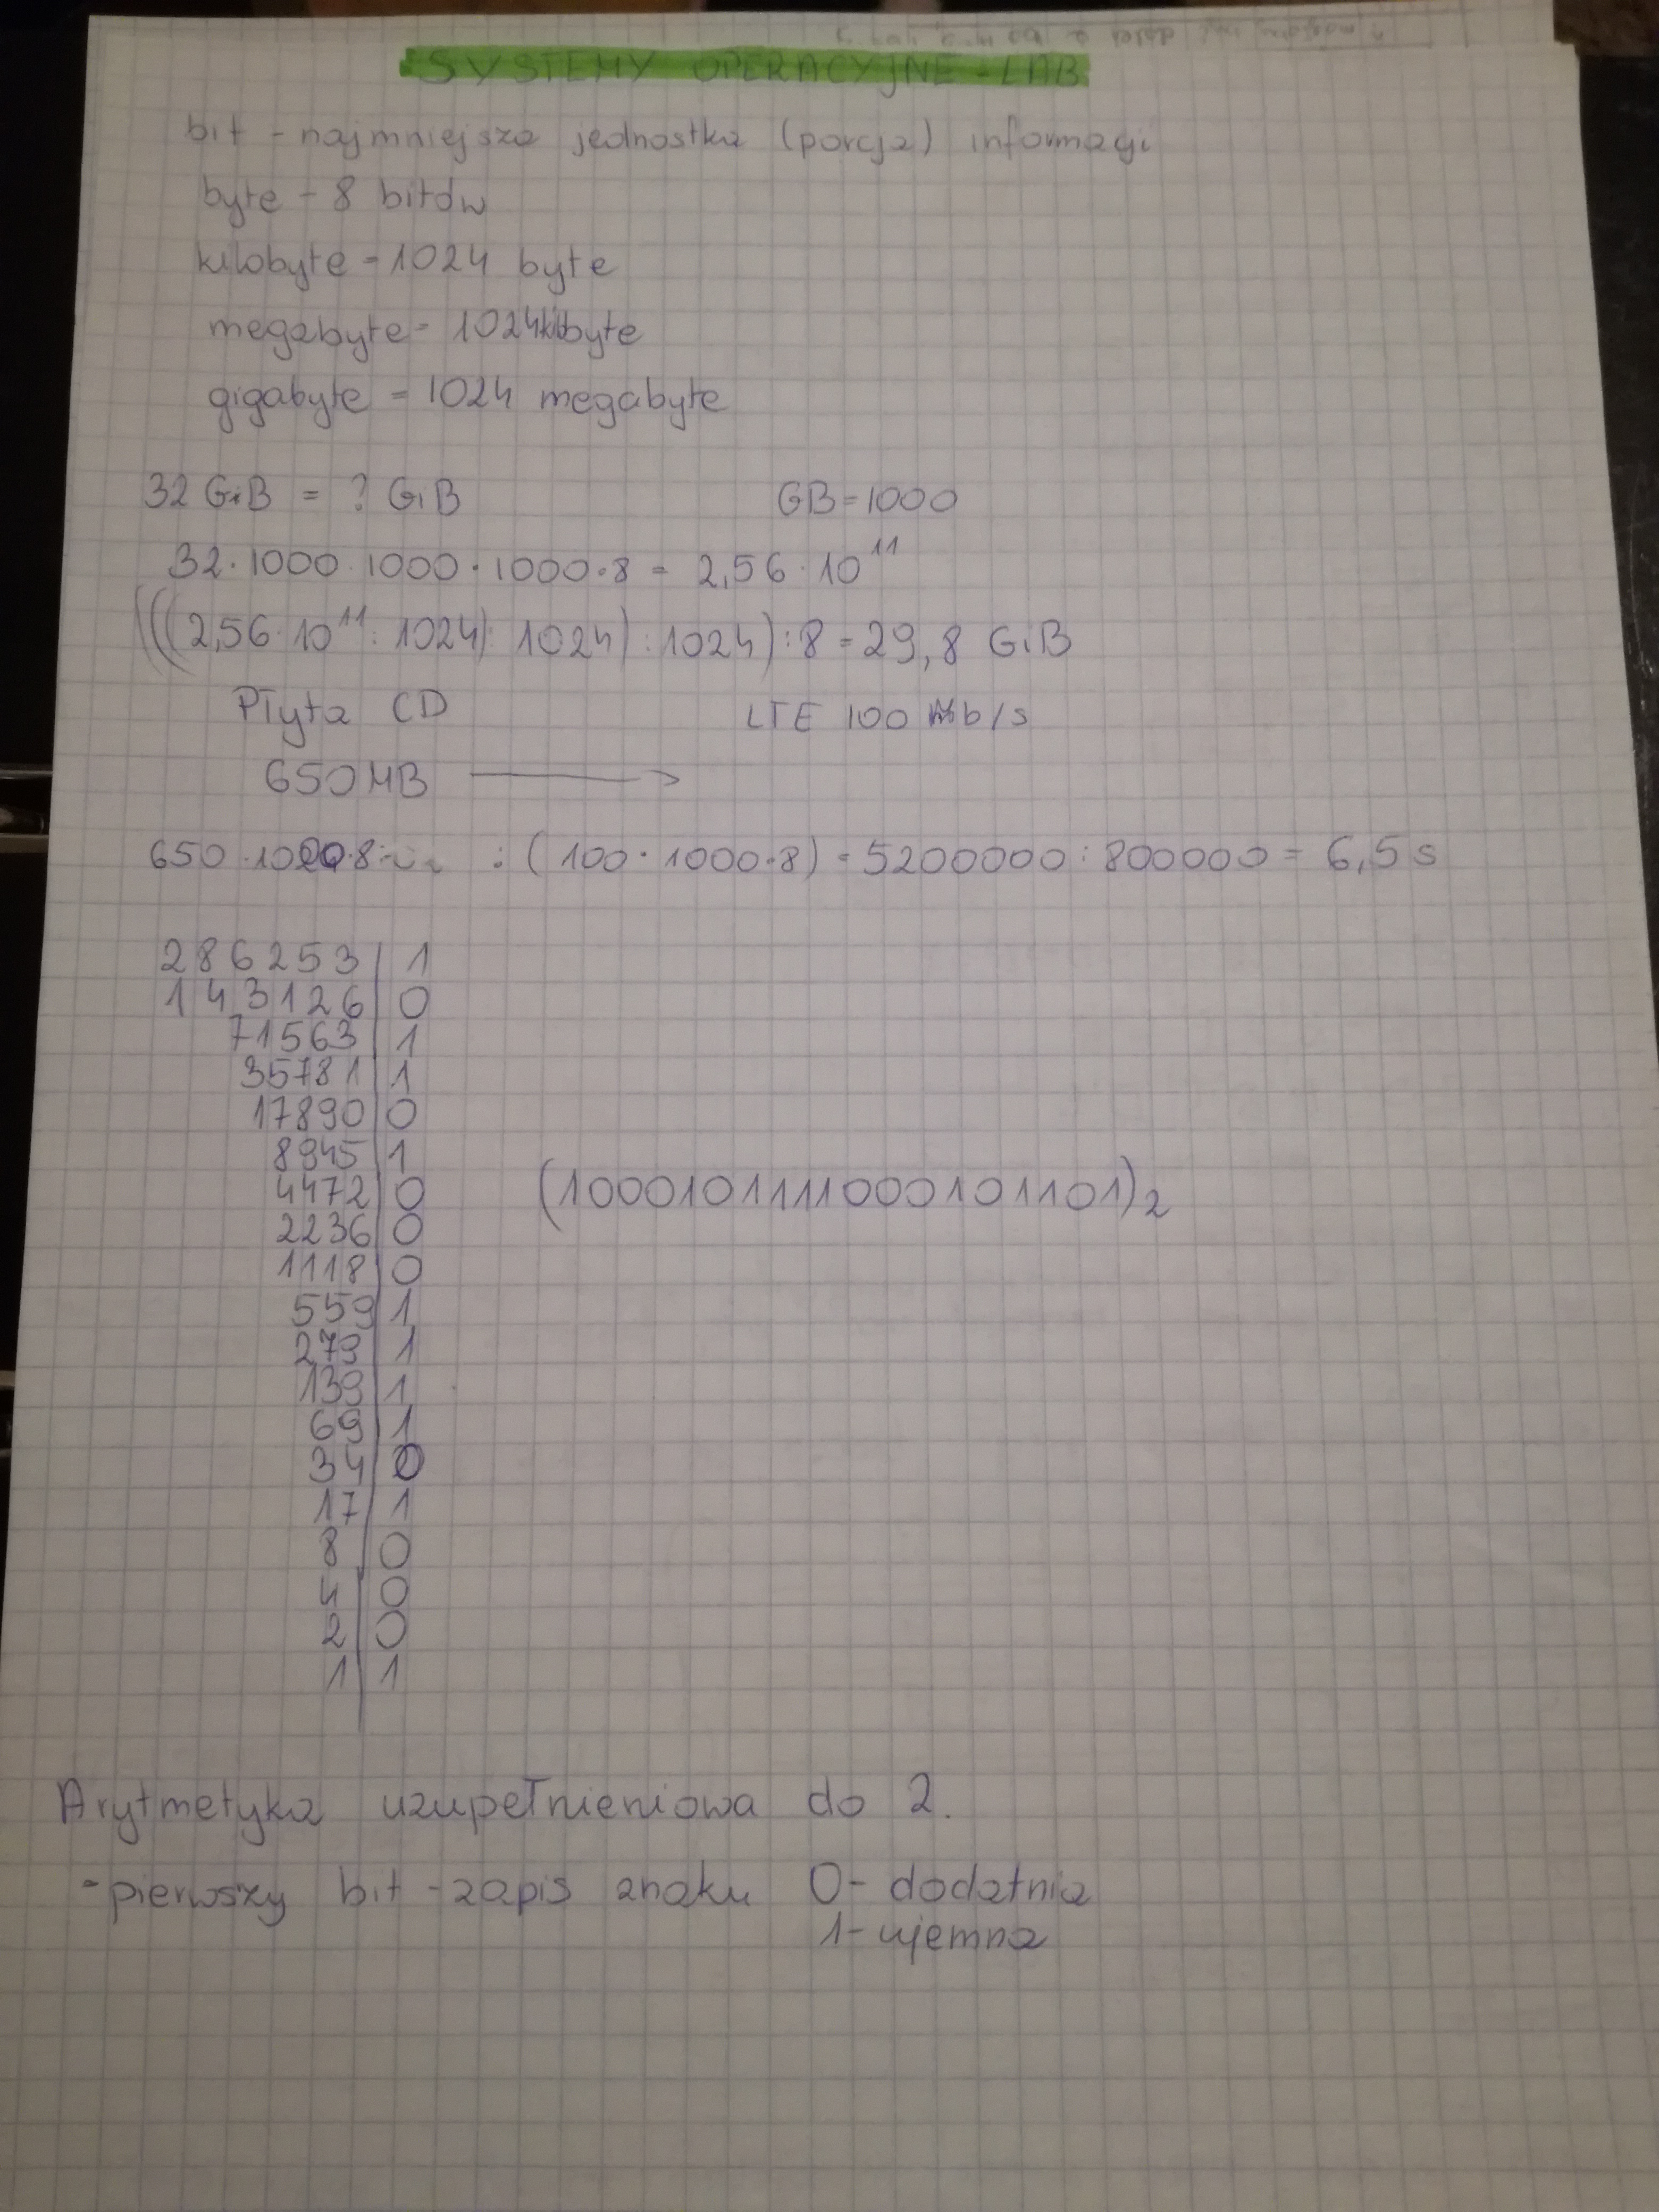 SYSTEMY OPERACYJNE - LAB
bit - najmniejsza jednostka (porcja) informacji
byte - 8 bitów
kilobyte = 1024 byte
megabyte = 1024 kilobyte
gigabyte = 1024 megabyte
32 GiB = ? GiB GB = 1000
32 · 1000 · 1000 · 1000 · 8 = 2,56 · 10^11
(((2,56 · 10^11 : 1024) : 1024) : 1024) : 8 = 29,8 GiB
Płyta CD LTE 100 Mb/s
650 MB →
650 · 1000 · 8 : (100 · 1000 · 8) = 5200000 : 800000 = 6,5 s
286253 | 1
143126 | 0
71563 | 1
35781 | 1
17890 | 0
8945 | 1
4472 | 0 (1000101111000101101)2
2236 | 0
1118 | 0
559 | 1
279 | 1
139 | 1
69 | 1
34 | 0
17 | 1
8 | 0
4 | 0
2 | 0
1 | 1
Arytmetyka uzupełnieniowa do 2.
- pierwszy bit - zapis znaku 0 - dodatnia
1 - ujemna